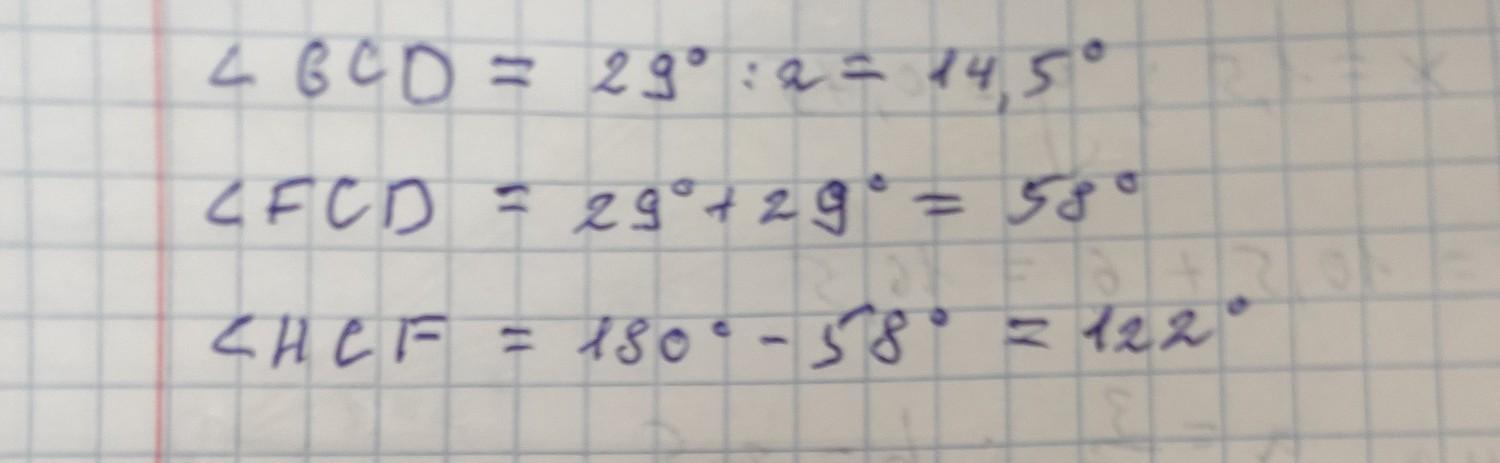 ∠ BCD = 29° : 2 = 14,5°
∠ FCD = 29° + 29° = 58°
∠ HCF = 180° - 58° = 122°